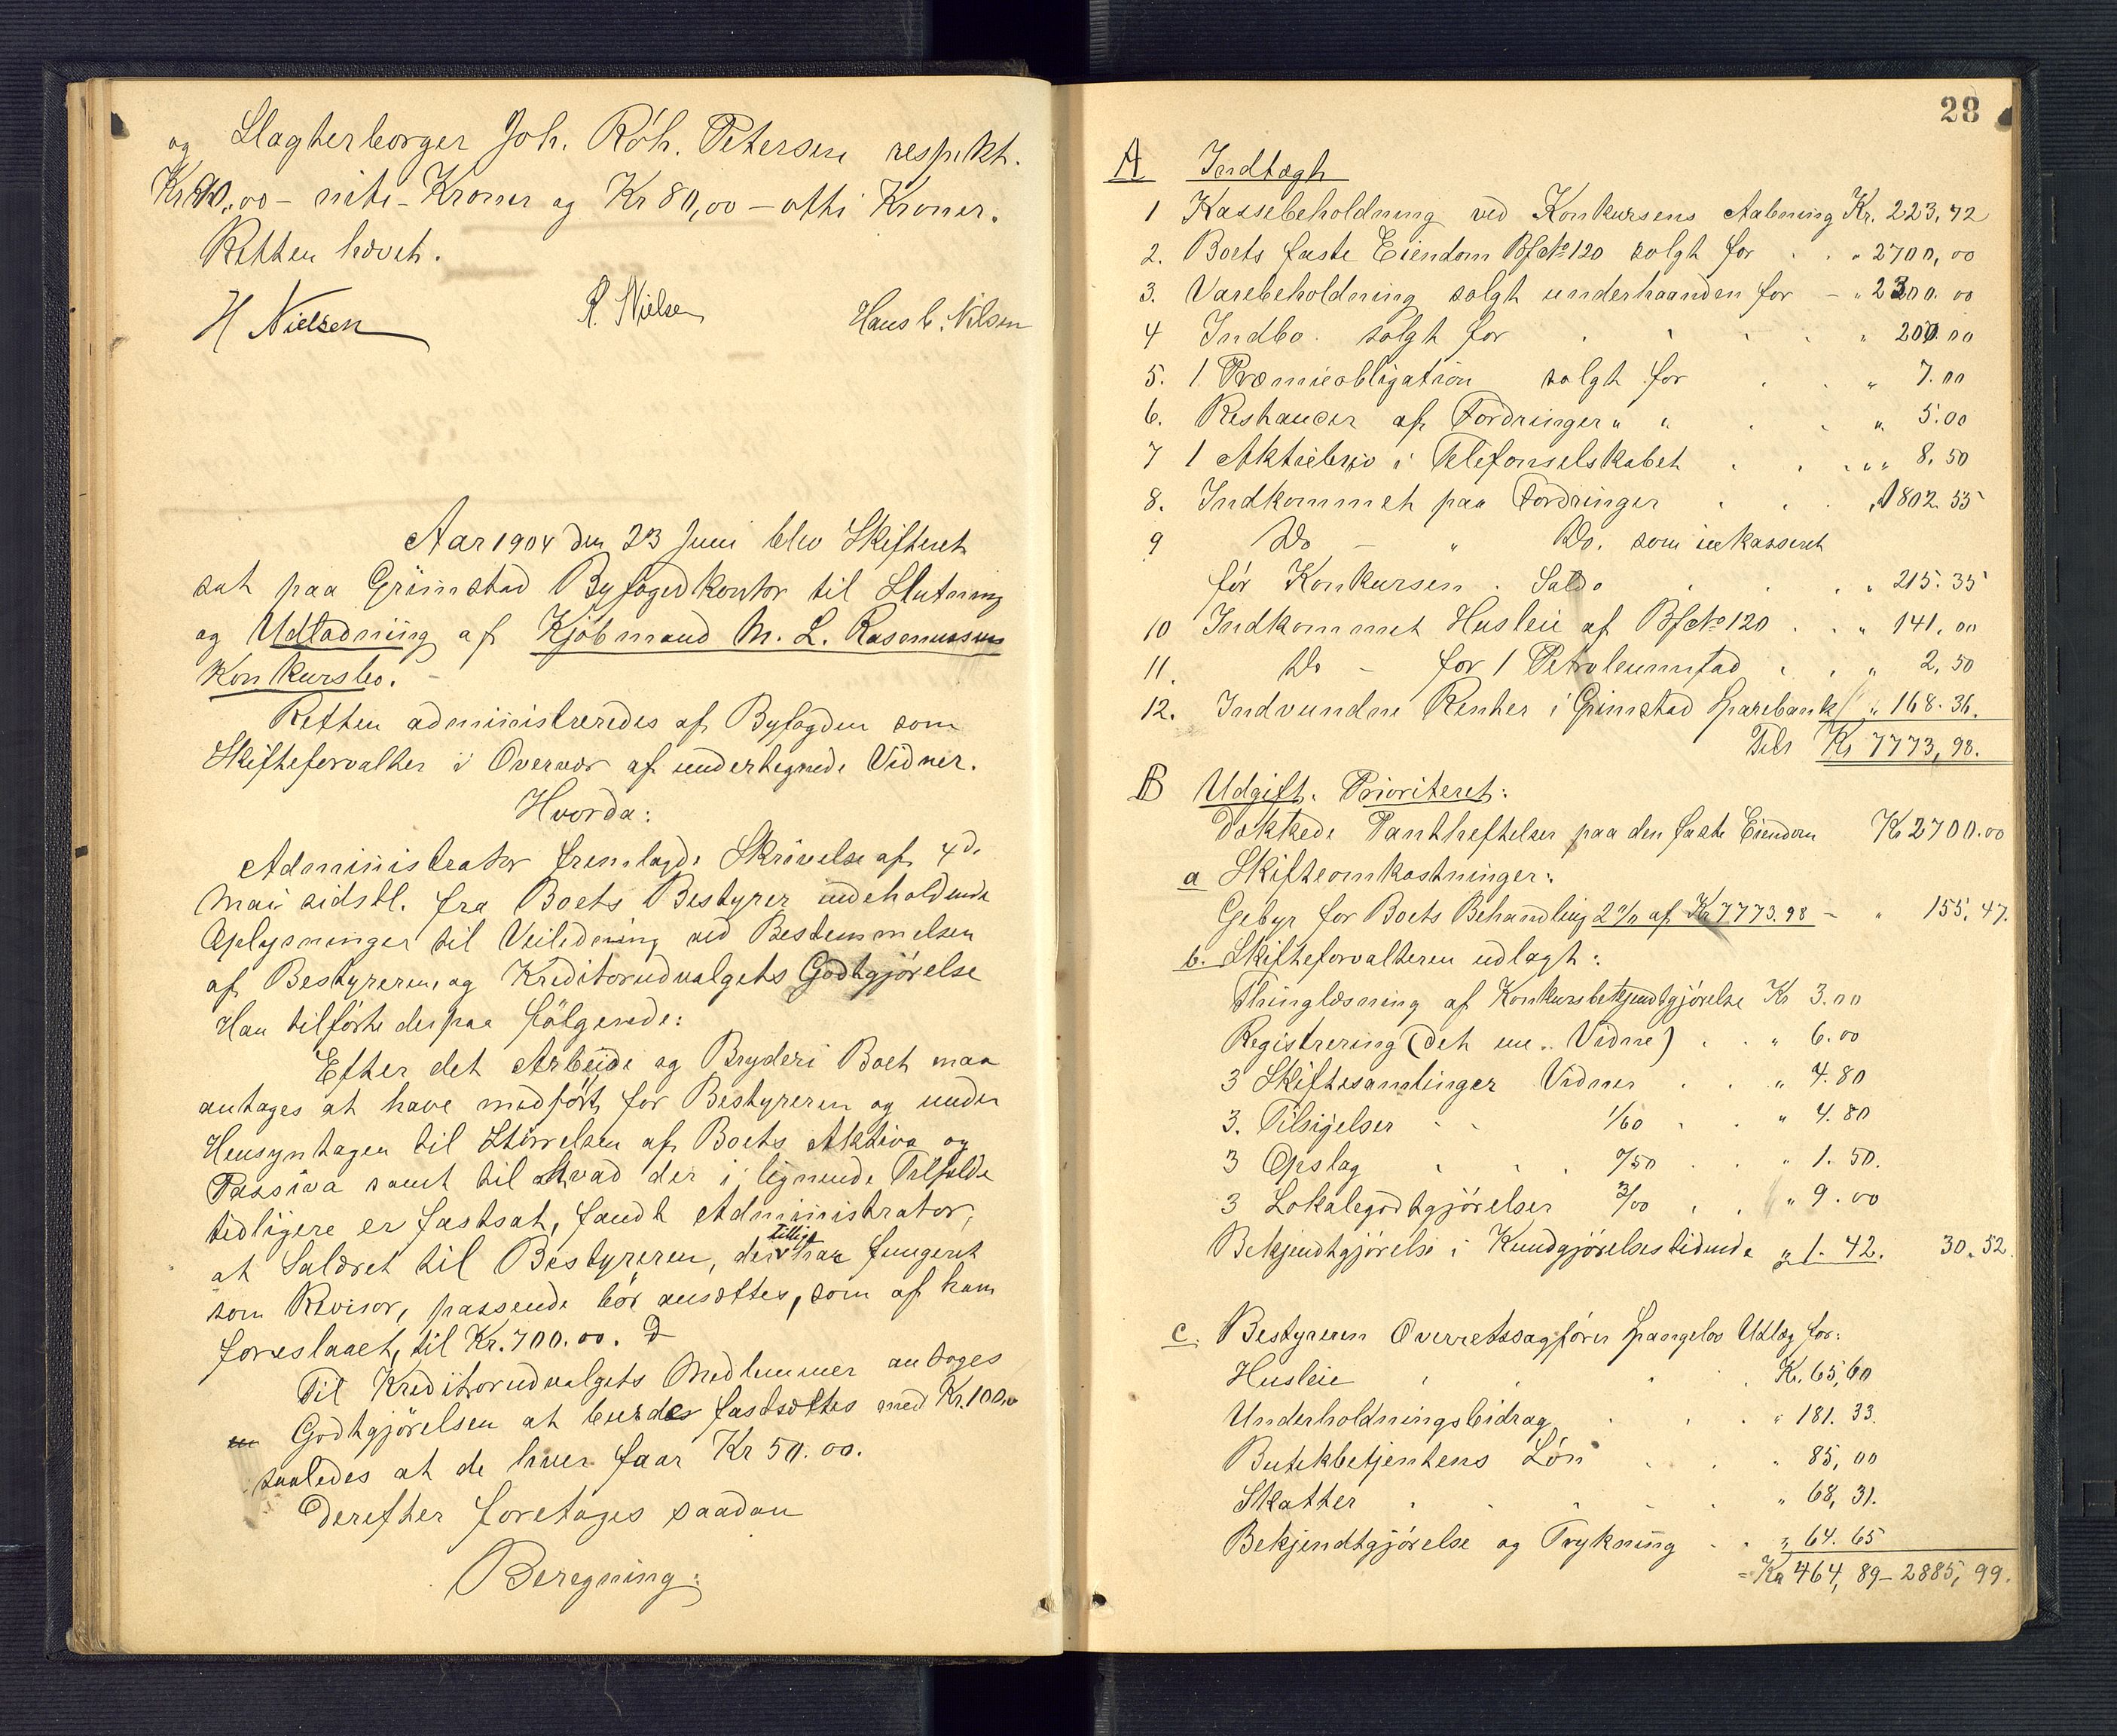 og Slagterborger Joh. Röh. Petersen respekt.
Kr 90,00 – niti – Kroner og Kr 80,00 – otti Kroner.
Retten hævet.
H Nielsen R. Nielsen Hans C. Nilsen
Aar 1904 den 23 Juni blev Skifteret
sat paa Grimstad Byfogedkontor til Slutning
og Udlodning af Kjöbmand M. L. Rasmussens
Konkursbo.
Retten administreredes af Byfogden som
Skifteforvalter i Overvær af undertegnede Vidner.
Hvorda:
Administrator fremlagde Skrivelse af 4d.
Mai sidstl. fra Boets Bestyrer indeholdende
Oplysninger til Veiledning ved Bestemmelsen
af Bestyreren, og Kreditorudvalgets Godtgjörelse
Han tilförte derpaa fölgende:
Efter det Arbeide og Bryderi Boet maa
antages at have medfört for Bestyreren og under
Hensyntagen til Störrelsen af Boets Aktiva og
Passiva samt til hvad der i lignende Tilfælde
tidligere er fastsat, fandt Administrator,
at Salæret til Bestyreren, der tillige har fungeret
som Revisor, passende bör ansættes, som af ham
foreslaaet, til Kr. 700.00.
Til Kreditorudvalgets Medlemmer antoges
Godtgjörelsen at burde fastsættes med Kr. 100,00
saaledes at de hver faar Kr 50.00.
Derefter foretoges saadan
Beregning:
28
A Indtægt
1 Kassebeholdning ved Konkursens Aabning Kr. 223,72
2. Boets faste Eiendom Bf No 120 solgt for " 2700,00
3. Varebeholdning solgt underhaanden for – " 2300.00
4 Indbo solgt for " 200.00
5. 1 Præmieobligation solgt for " 7.00
6. Restancer af Fordringer " " " 5.00
7 1 Aktiebrev i Telefonselskabet " " 8,50
8. Indkommet paa Fordringer " 1802.55
9 Do – " Do. som inkasseret
för Konkursen. Saldo " 215.35
10 Indkommet Husleie af Bf No 120 " 141,00
11. Do – for 1 Petroleumsfad " 2,50
12. Indvundne Renter i Grimstad Sparebank " 168.36.
Tils Kr 7773,98.
B Udgift. Prioriteret:
Dækkede Pantheftelser paa den faste Eiendom Kr 2700.00
a Skifteomkostninger:
Gebyr for Boets Behandling 2% af Kr 7773.98 – " 155,47.
b. Skifteforvalteren udlagt:
Thinglæsning af Konkursbekjendtgjörelse Kr 3.00
Registrering (det ene Vidne) " 6.00
3 Skiftesamlinger Vidner " 4.80
3. Tilsigelser 1/60 " 4.80
3 Opslag 0/50 " 1.50.
3 Lokalegodtgjörelser 3/00 " 9.00
Bekjendtgjörelse i Kundgjörelsestidende " 1.42. 30,52.
c. Bestyreren Overretssagförer Spangelos Udlæg for:
Husleie Kr. 65,60
Underholdningsbidrag " 181.33.
Butikbetjentens Lön " 85,00
Skatter " 68,31.
Bekjendtgjörelse og Trykning " 64.65
= Kr 464,89 – 2885,99.